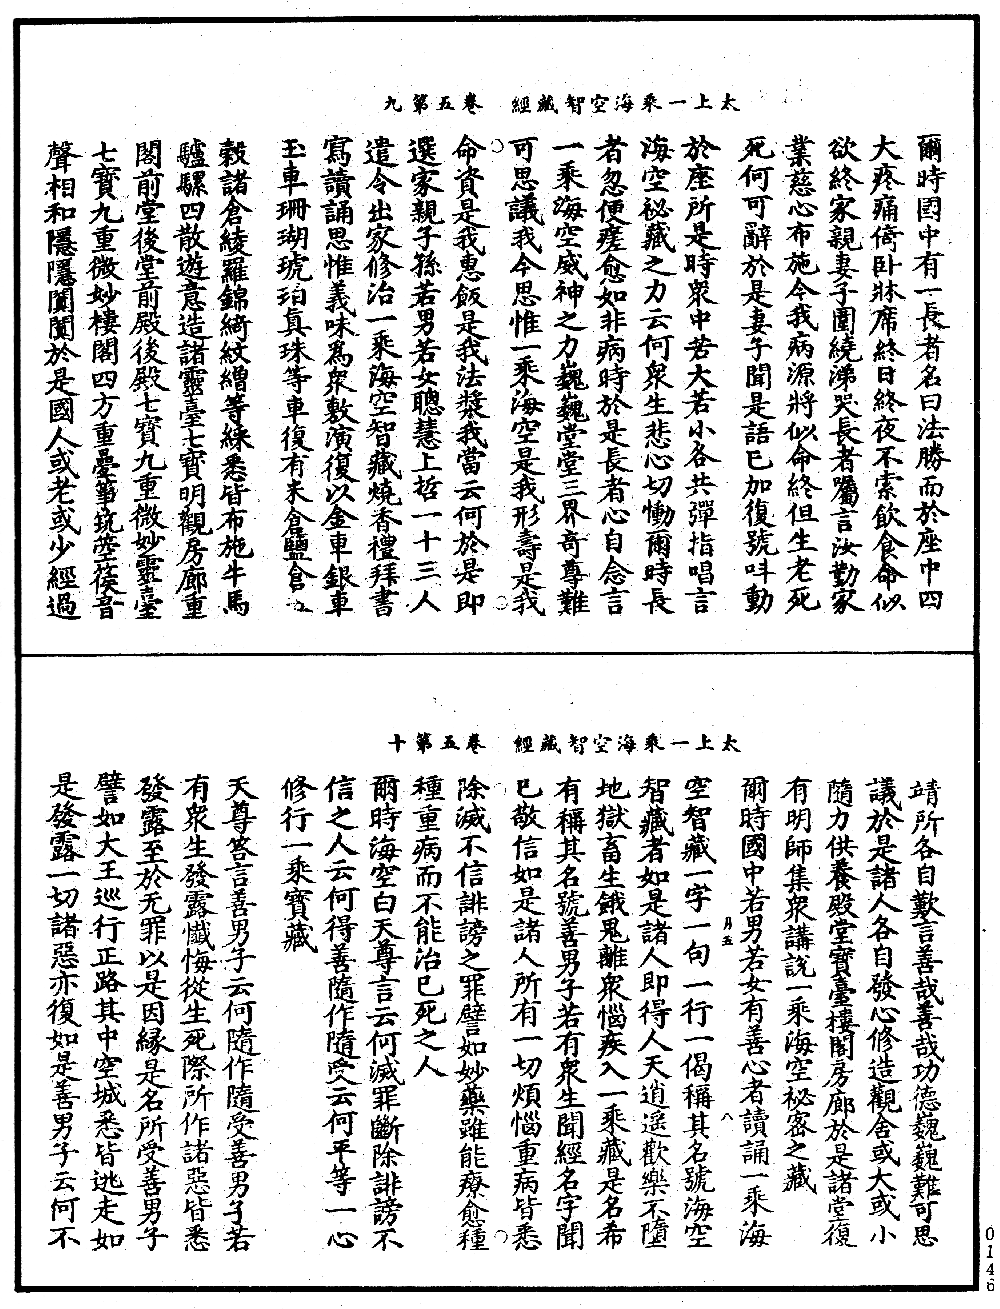 太上一乘海空智藏經　卷五第九
爾時國中有一長者名曰法勝而於座中四
大疼痛倚卧牀席終日終夜不索飲食命似
欲終家親妻子圍繞涕哭長者囑言汝勤家
業慈心布施今我病源將似命終但生老死
死何可辭於是妻子聞是語已加復號叫動
於座所是時衆中若大若小各共彈指唱言
海空祕藏之力云何衆生悲心切慟爾時長
者忽便瘥愈如非病時於是長者心自念言
一乘海空威神之力巍巍堂堂三界奇尊難
可思議我今思惟一乘海空是我形壽是我
命資是我惠飯是我法漿我當云何於是即
選家親子孫若男若女聰慧上哲一十三人
遣令出家修治一乘海空智藏燒香禮拜書
寫讀誦思惟義味爲衆敷演復以金車銀車
玉車珊瑚琥珀真珠等車復有米倉鹽倉
穀諸倉綾羅錦綺紋繒等綵悉皆布施牛馬
驢騾四散遊意造諸靈臺七寶明觀房廊重
閣前堂後堂前殿後殿七寶九重微妙靈臺
七寶九重微妙樓閣四方重疊箏筑箜篌音
聲相和隱隱闐闐於是國人或老或少經過
太上一乘海空智藏經　卷五第十
靖所各自歎言善哉善哉功德巍巍難可思
議於是諸人各自發心修造觀舍或大或小
隨力供養殿堂寶臺樓閣房廊於是諸堂復
有明師集衆講説一乘海空祕密之藏
爾時國中若男若女有善心者讀誦一乘海
空智藏一字一句一行一偈稱其名號海空
智藏者如是諸人即得人天逍遥歡樂不墮
地獄畜生餓鬼離衆惱疾入一乘藏是名希
有稱其名號善男子若有衆生聞經名字聞
已敬信如是諸人所有一切煩惱重病皆悉
除滅不信誹謗之罪譬如妙藥雖能療愈種
種重病而不能治已死之人
爾時海空白天尊言云何滅罪斷除誹謗不
信之人云何得善隨作隨受云何平等一心
修行一乘寶藏
天尊答言善男子云何隨作隨受善男子若
有衆生發露懺悔從生死際所作諸惡皆悉
發露至於无罪以是因緣是名所受善男子
譬如大王巡行正路其中空城悉皆逃走如
是發露一切諸惡亦復如是善男子云何不
月五
八
0146